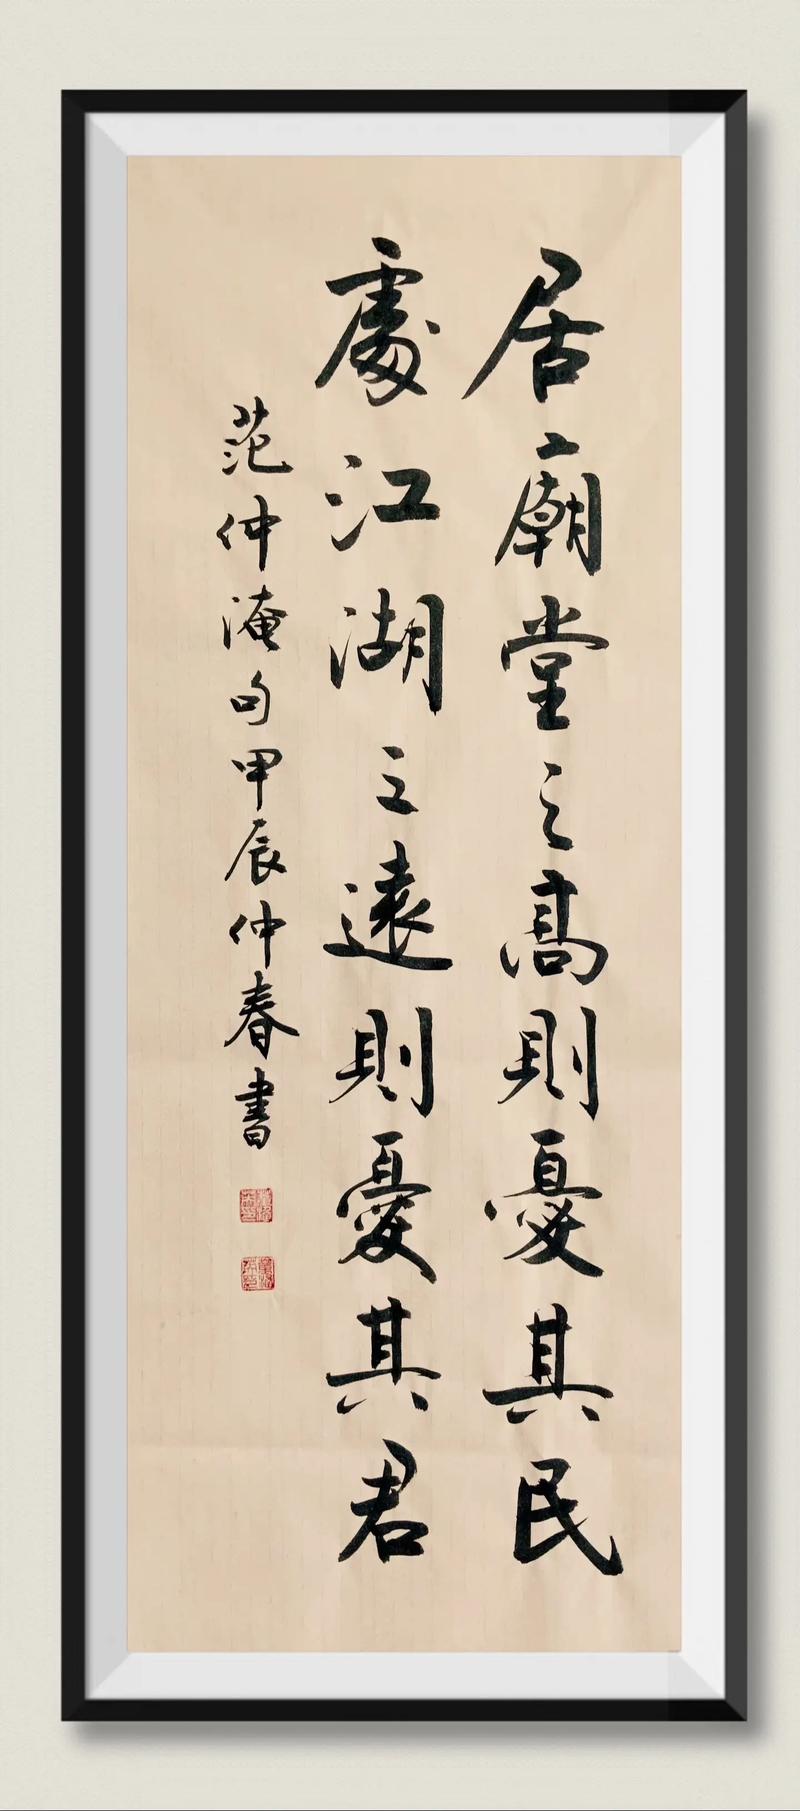 居廟堂之高則憂其民
處江湖之遠則憂其君
范仲淹句甲辰仲春書